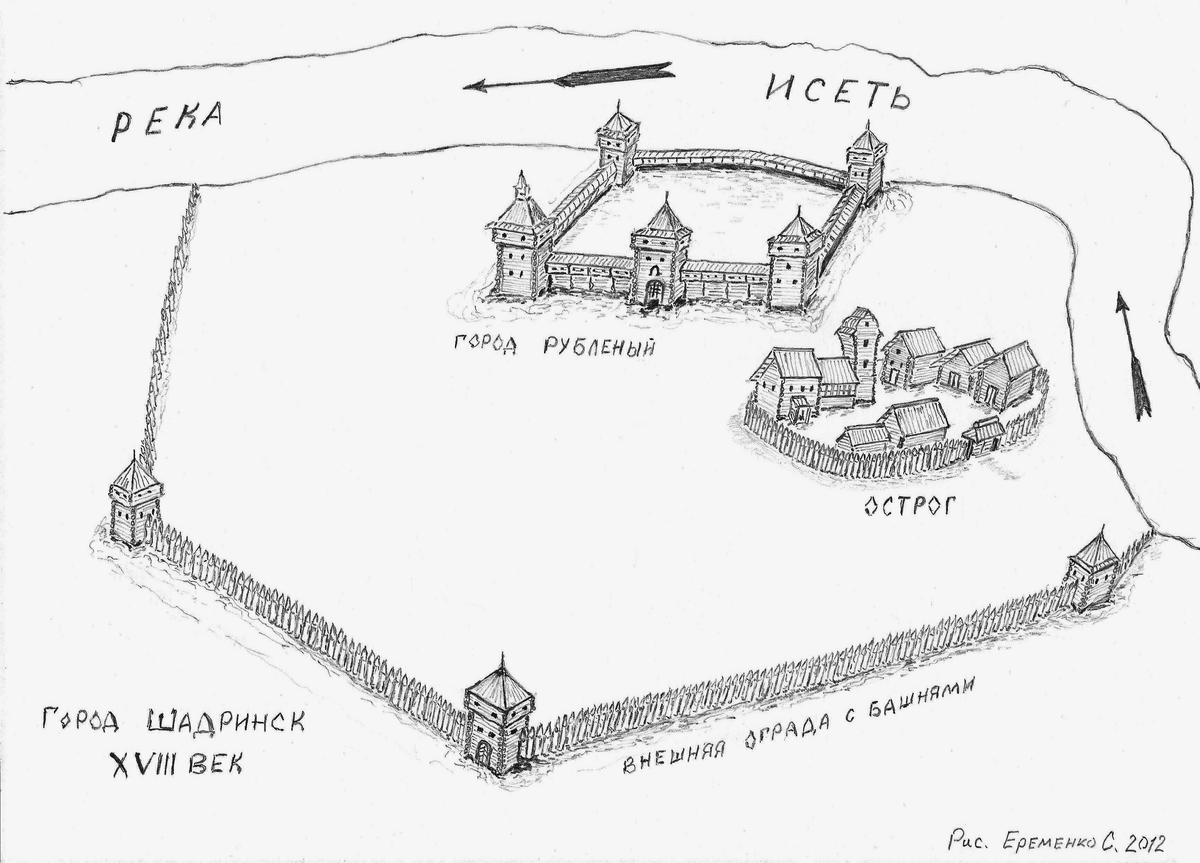 РЕКА ИСЕТЬ
ГОРОД РУБЛЕНЫЙ
ОСТРОГ
ВНЕШНЯЯ ОГРАДА С БАШНЯМИ
ГОРОД ШАДРИНСК
XVIII ВЕК
Рис. Еременко С. 2012